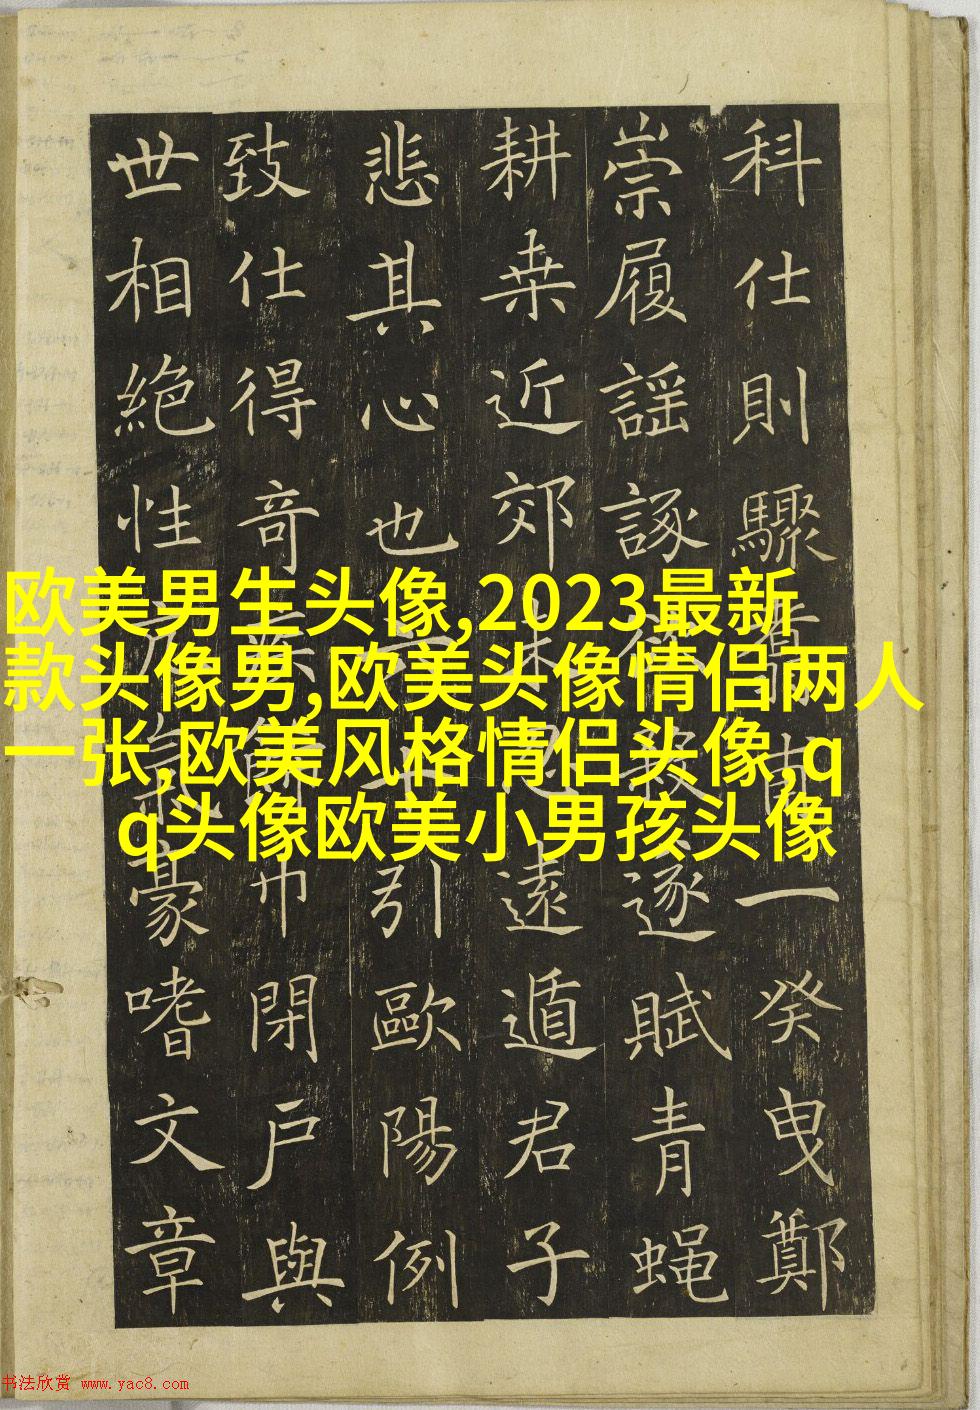 欧美男生头像,2023最新
款头像男,欧美头像情侣两人
一张,欧美风格情侣头像,q
q头像欧美小男孩头像
科仕則驟一癸曳鄭
崇履謡諑逐賦青蝇
耕桒近郊遠遁君子
悲其心也引歐陽例
致仕得奇巾閉戸與
世相絶性豪嗜文章
书法欣赏 www.yac8.com